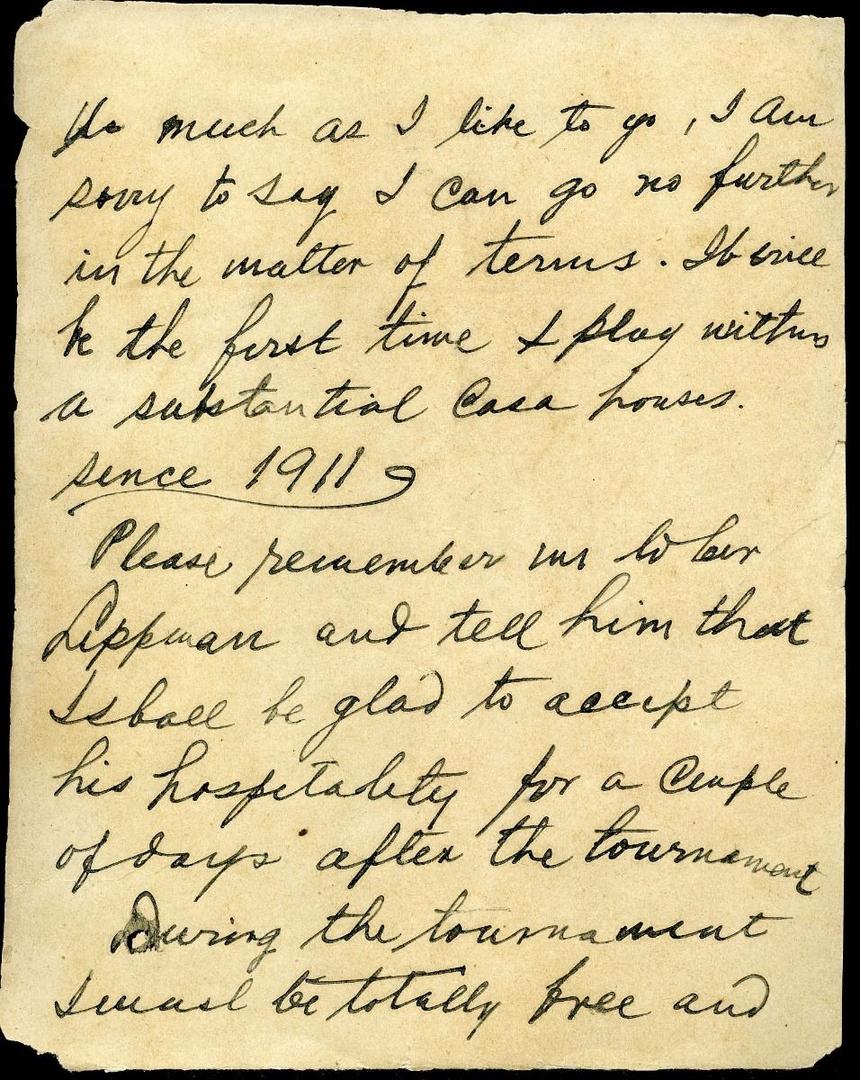 As much as I like to go, I am
sorry to say I can go no further
in the matter of terms. It will
be the first time I play within
a substantial casa houses.
since 1911
Please remember me to
Lippman and tell him that
I shall be glad to accept
his hospitality for a couple
of days after the tournament
During the tournament
I must be totally free and